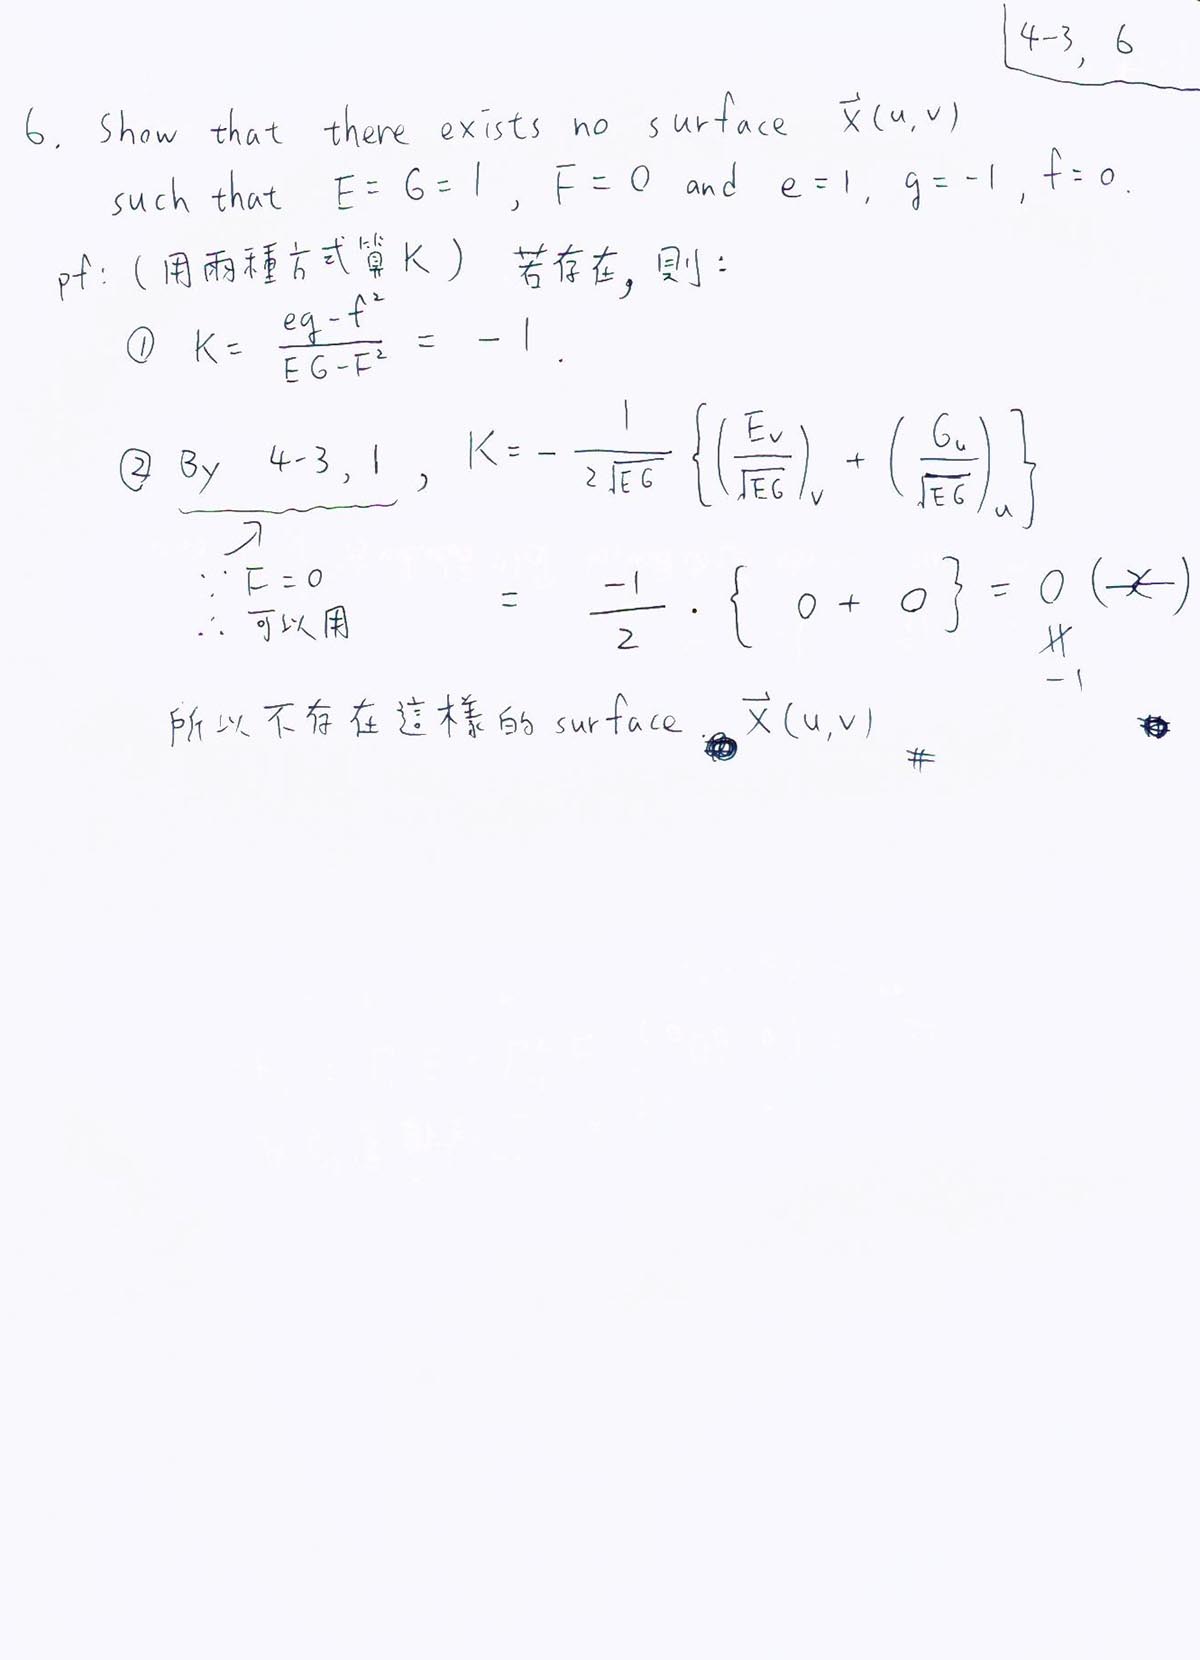 4-3, 6
6. Show that there exists no surface $\vec{X}(u,v)$
such that E=G=1, F=0 and e=1, g=-1, f=0.
pf: (用兩種方式算K) 若存在, 則:
① $K = \frac{eg-f^2}{EG-F^2} = -1$.
② By 4-3, 1, $K = -\frac{1}{2\sqrt{EG}} \left\{ \left( \frac{E_v}{\sqrt{EG}} \right)_v + \left( \frac{G_u}{\sqrt{EG}} \right)_u \right\}$
∵ F=0
∴ 可以用
$= \frac{-1}{2} \cdot \{ 0 + 0 \} = 0$ (→←)
∦
-1
所以不存在這樣的 surface $\vec{X}(u,v)$
#